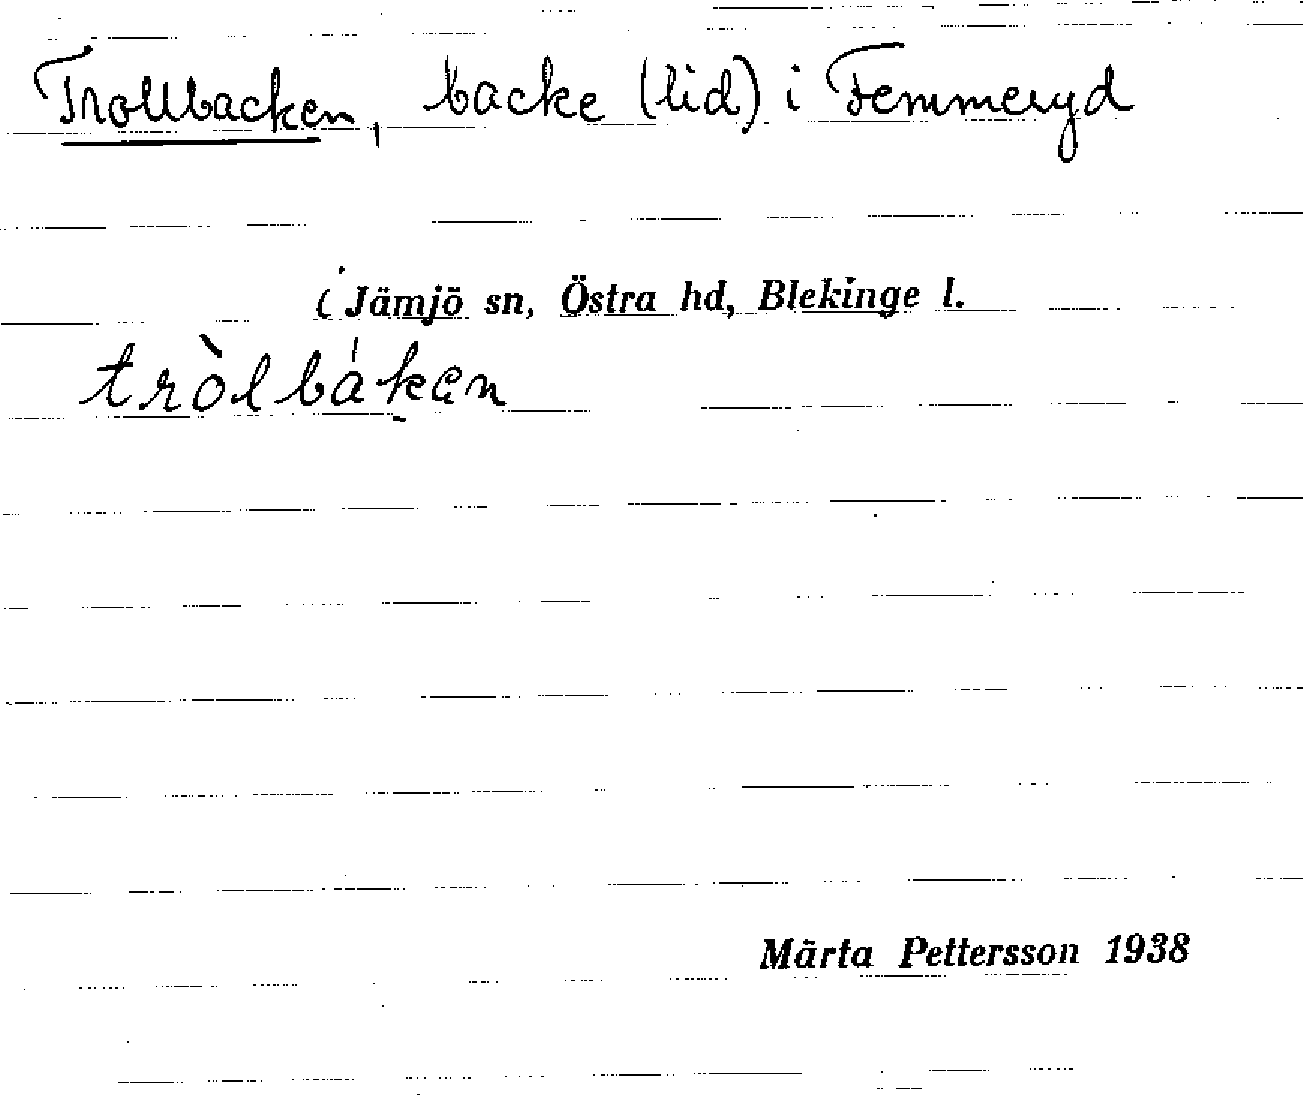 Trollbacken, backe (lid) i Femmeryd
i Jämjö sn, Östra hd, Blekinge l.
tròlbákan
Märta Pettersson 1938